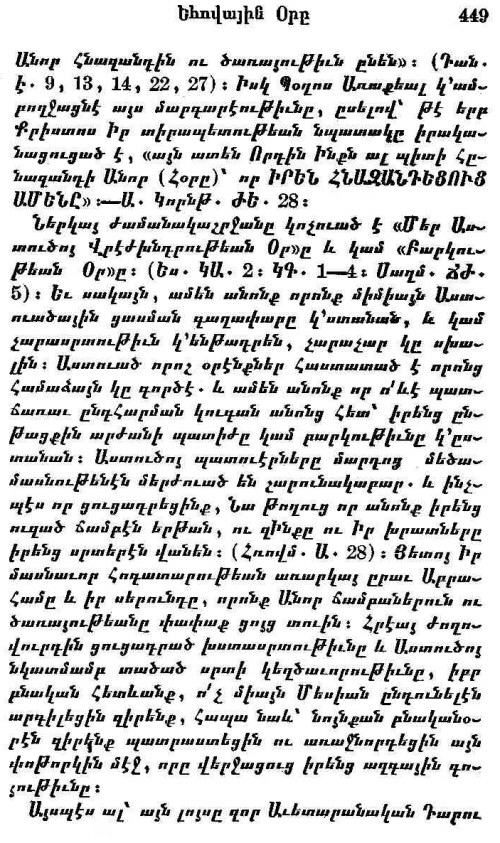 Եհովային Օրը 449
Անոր Հնազանդին ու ծառայութիւն ընեն»։ (Դան.
Է. 9, 13, 14, 22, 27)։ Իսկ Պօղոս Առաքեալ կ՚ամ-
բողջացնէ այս մարգարէութիւնը, ըսելով՝ թէ երբ
Քրիստոս Իր տիրապետութեան նպատակը իրակա-
նացուցած է, «այն ատեն Որդին Ինքն ալ պիտի Հը-
նազանդի Անոր (Հօրը)՝ որ ԻՐԵՆ ՀՆԱԶԱՆԴԵՑՈՒՑ
ԱՄԵՆԸ»։—Ա. Կորնթ. ԺԵ. 28։
Ներկայ ժամանակաշրջանը կոչուած է «Մեր Աս-
տուծոյ Վրէժխնդրութեան Օր»ը և կամ «Բարկու-
թեան Օր»ը։ (Ես. ԿԱ. 2։ ԿԳ. 1—4։ Սաղմ. ՃԺ.
5)։ Եւ սակայն, ամեն անոնք որոնք միմիայն Աստ-
ուածային ցասման գաղափարը կ՚ստանան, և կամ
չարասրտութիւն կ՚ենթադրեն, չարաչար կը սխա-
լին։ Աստուած որոշ օրէնքներ Հաստատած է որոնց
Համաձայն կը գործէ. և ամեն անոնք որ ո՛ևէ պատ-
ճառաւ ընդՀարման կուգան անոնց Հետ՝ իրենց ըն-
թացքին արժանի պատիժը կամ բարկութիւնը կ՚ըս-
տանան։ Աստուծոյ պատուէրները մարդոց մեծա-
մասնութենէն մերժուած են շարունակաբար. և ինչ-
պէս որ ցուցադրեցինք, Նա թողուց որ անոնք իրենց
ուզած ճամբէն երթան, ու զինքը ու Իր խրատները
իրենց սրտերէն վանեն։ (Հռովմ. Ա. 28)։ Յետոյ Իր
մասնաւոր Հոգատարութեան առարկայ ըրաւ Աբրա-
Համը և իր սերունդը, որոնք Անոր ճամբաներուն ու
ծառայութեանը փափաք ցոյց տուին։ Հրէայ ժողո-
վուրդին ցուցադրած խստասրտութիւնը և Աստուծոյ
նկատմամբ տածած սրտի կեղծաւորութիւնը, իբր
բնական Հետևանք, ո՛չ միայն Մեսիան ընդունելէն
արգիլեցին զիրենք, Հապա նաև՝ նոյնքան բնականօ-
րէն զիրենք պատրաստեցին ու առաջնորդեցին այն
փոթորկին մէջ, որը վերջացուց իրենց ազգային գո-
յութիւնը։
Այսպէս ալ՝ այն լոյսը զոր Աւետարանական Դարու